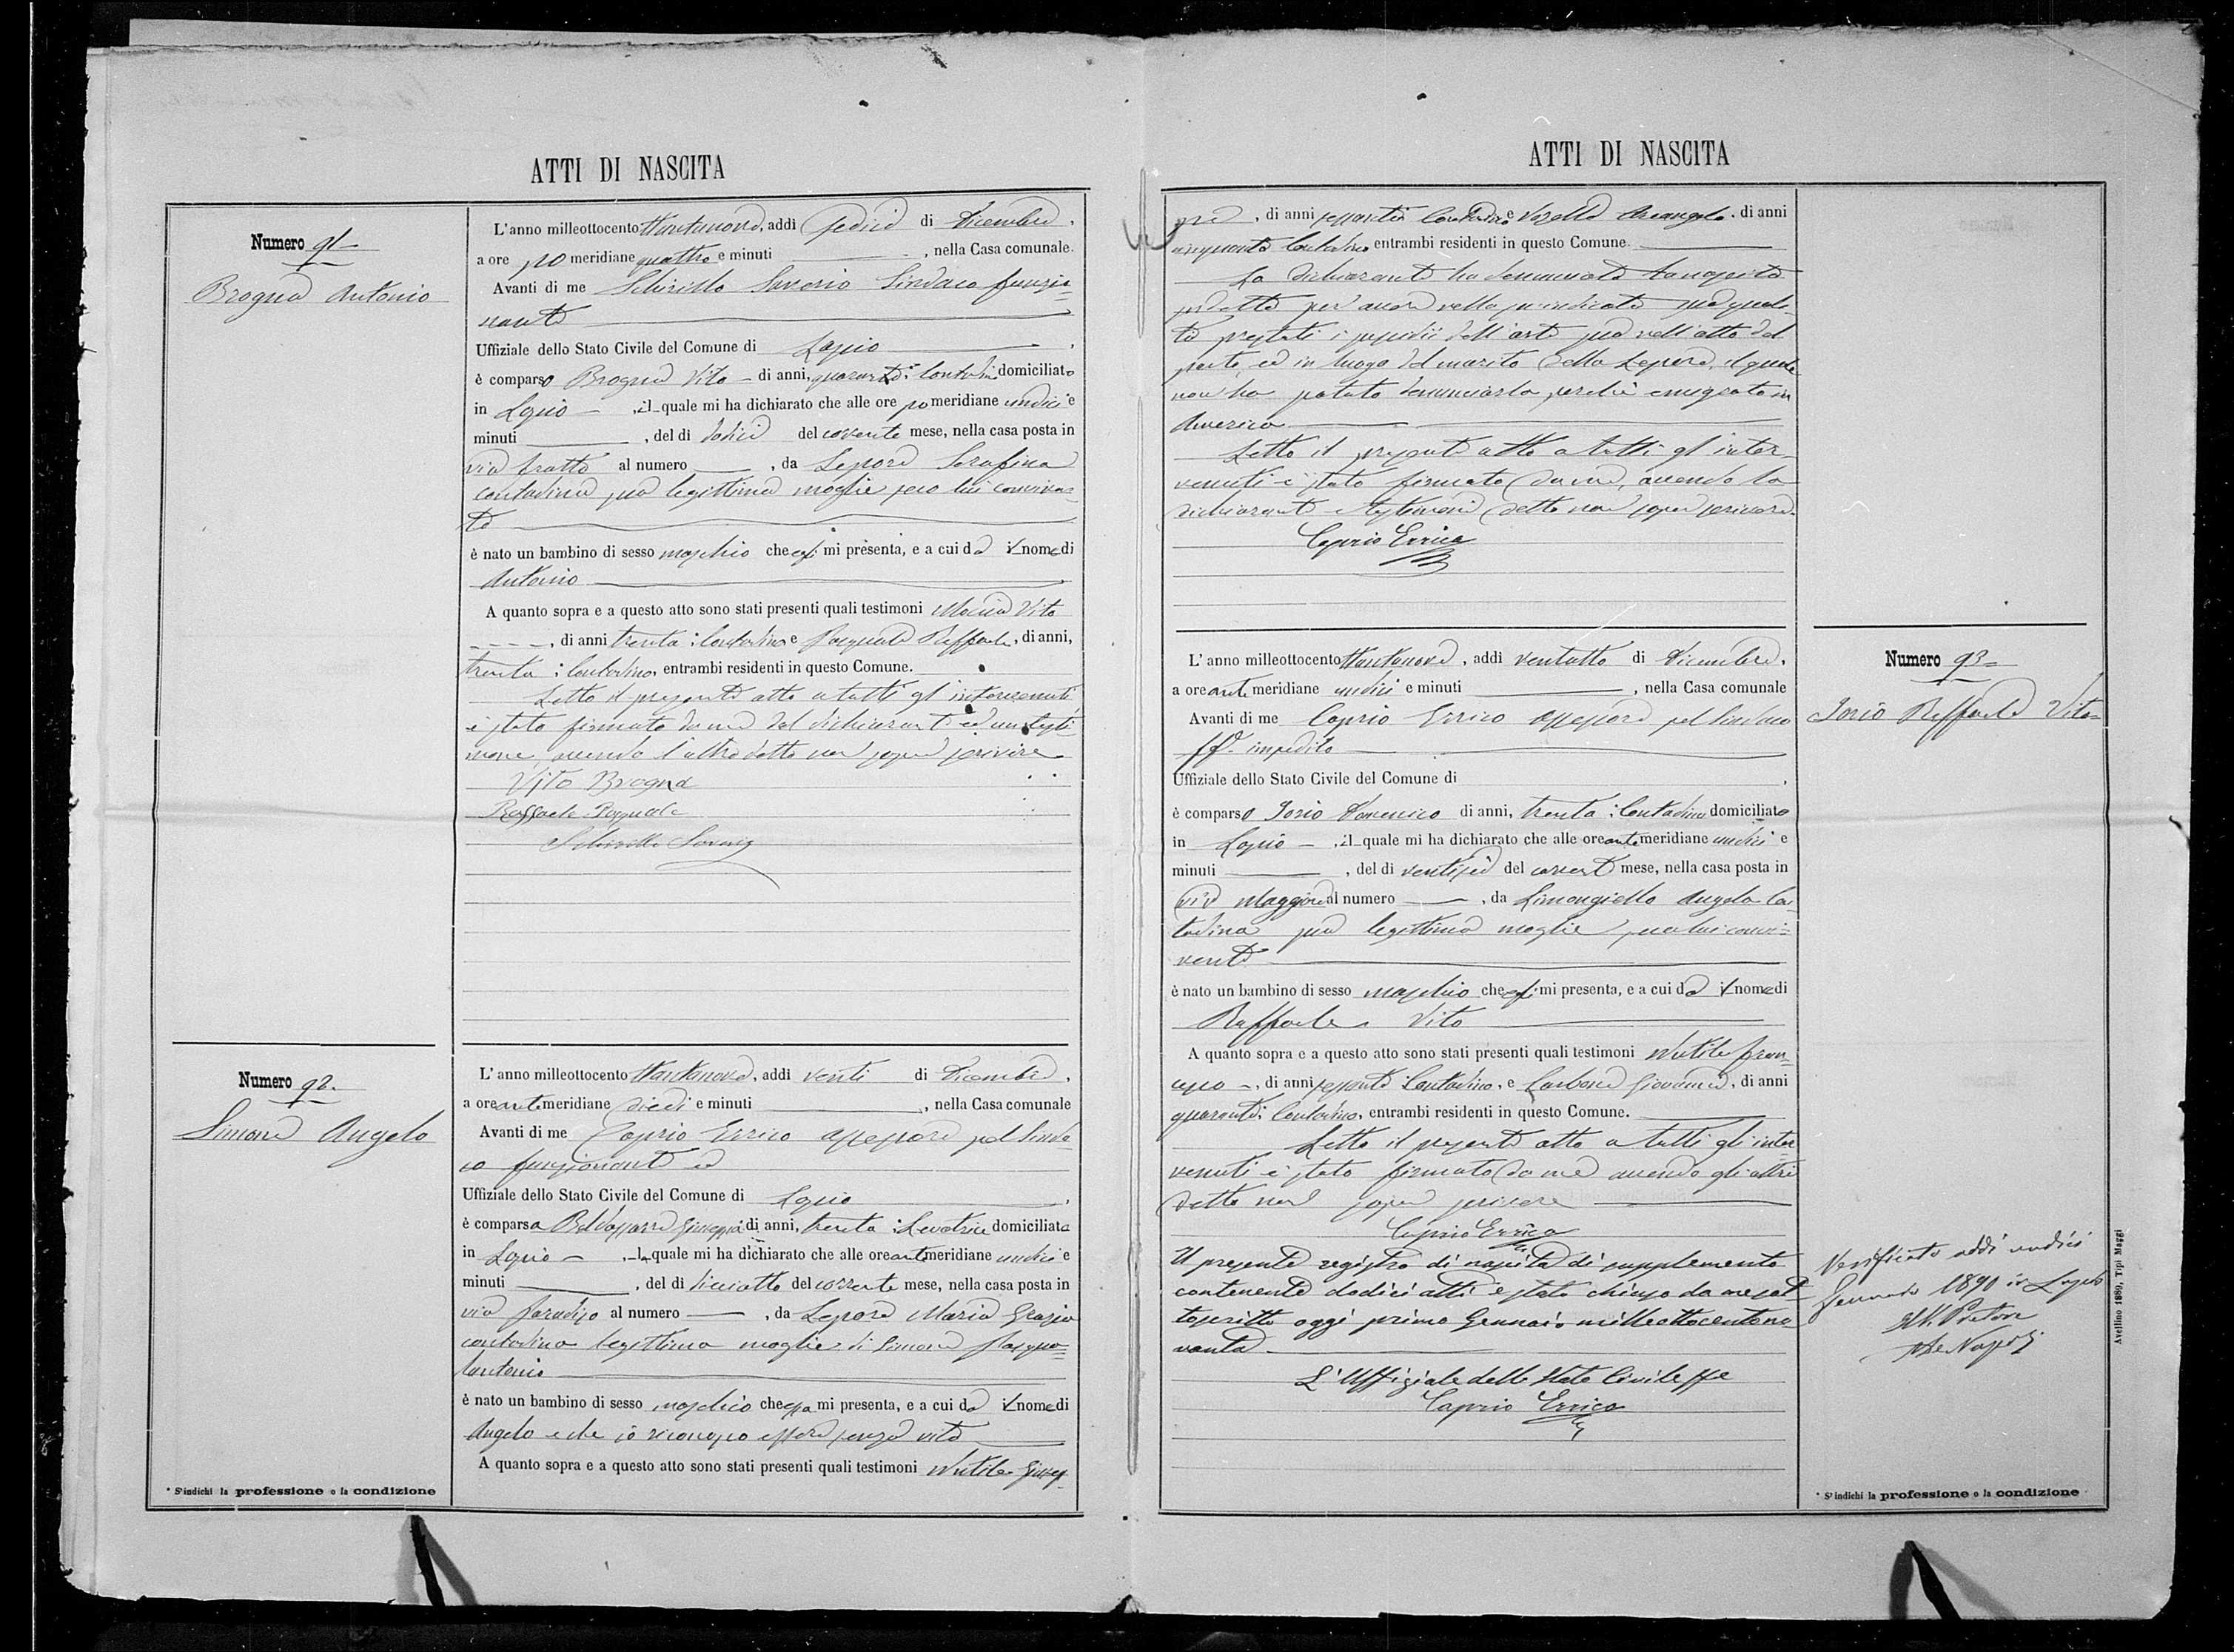 ATTI DI NASCITA
Numero 91
Brogna Antonio
L'anno milleottocento ottantanove, addì sedici di Dicembre,
a ore po meridiane quattro e minuti , nella Casa comunale.
Avanti di me Schirillo Saverio Sindaco funzio
nante
Uffiziale dello Stato Civile del Comune di Lapio ,
è comparso Brogna Vito di anni, quaranta: Contadino domiciliato
in Lapio , il quale mi ha dichiarato che alle ore po meridiane undici e
minuti , del dì dodici del corrente mese, nella casa posta in
via fratte al numero , da Lepore Serafina
contadina sua legittima moglie seco lui conviven=
te
è nato un bambino di sesso maschio che egli mi presenta, e a cui dà il nome di
Antonio
A quanto sopra e a questo atto sono stati presenti quali testimoni Vito
, di anni trenta: Contadino e Pasquale Raffaele, di anni,
trenta: Contadino, entrambi residenti in questo Comune.
Letto il presente atto a tutti gl' intervenuti
è stato firmato da me dal dichiarante ed un testi
mone, avendo l'altro detto non saper scrivere
Vito Brogna
Raffaele Pasquale
Schirillo Saverio
Numero 92.
Simone Angelo
L'anno milleottocento ottantanove, addì venti di Dicembre,
a ore ante meridiane dieci e minuti , nella Casa comunale
Avanti di me Caprio Errico assessore pel Sinda
co funzionante ed
Uffiziale dello Stato Civile del Comune di Lapio ,
è comparsa Baldassarre Giuseppa di anni, trenta: Levatrice domiciliata
in Lapio , la quale mi ha dichiarato che alle ore ante meridiane undici e
minuti , del dì diciotto del corrente mese, nella casa posta in
via Paradiso al numero , da Lepore Maria Grazia
contadina legittima moglie di Simone Pasqua=
lantonio
è nato un bambino di sesso maschio che essa mi presenta, e a cui dà il nome di
Angelo e che io riconosco essere senza vita
A quanto sopra e a questo atto sono stati presenti quali testimoni Nutile Giusep-
* S'indichi la professione o la condizione
ATTI DI NASCITA
pe , di anni sessanta Contadino e Vozella Arcangelo, di anni
cinquanta Contadino, entrambi residenti in questo Comune.
La dichiarante ha denunciato la nascita
predetta per aver nella sua qua
tà prestati i sussidii dell'arte sua nell'atto del
parto, ed in luogo del marito della Lepore, il quale
non ha potuto denunciarla perchè emigrato in
America
Letto il presente atto a tutti gl' inter-
venuti è stato firmato da me, avendo la
dichiarante e testimoni detto non saper scrivere.
Caprio Errico
Numero 93
Iorio Raffaele Vito
L'anno milleottocento ottantanove, addì ventotto di Dicembre,
a ore ante meridiane undici e minuti , nella Casa comunale
Avanti di me Caprio Errico assessore pel Sindaco
ff. impedito
Uffiziale dello Stato Civile del Comune di ,
è comparso Iorio Domenico di anni, trenta: Contadino domiciliato
in Lapio , il quale mi ha dichiarato che alle ore ante meridiane undici e
minuti , del dì ventisei del corrente mese, nella casa posta in
via Maggiore al numero , da Limongiello Angela Con
tadina sua legittima moglie seco lui convi=
vente
è nato un bambino di sesso maschio che egli mi presenta, e a cui dà il nome di
Raffaele Vito
A quanto sopra e a questo atto sono stati presenti quali testimoni Nutile Fran=
cesco , di anni sessanta: Contadino, e Carbone Giovanni, di anni
quaranta: Contadino, entrambi residenti in questo Comune.
Letto il presente atto a tutti gli inter
venuti è stato firmato da me avendo gli altri
detto non saper scrivere
Caprio Errico
Il presente registro di nascita di supplemento
contenente dodici atti è stato chiuso da me sot-
toscritto oggi primo Gennaio milleottocentono
vanta.
L'Uffiziale dello Stato Civile ffe
Caprio Errico
Verificato addì undici
Gennaio 1890 in
Il Pretore
De Napoli
Avellino 1889, Tipi Maggi
* S'indichi la professione o la condizione